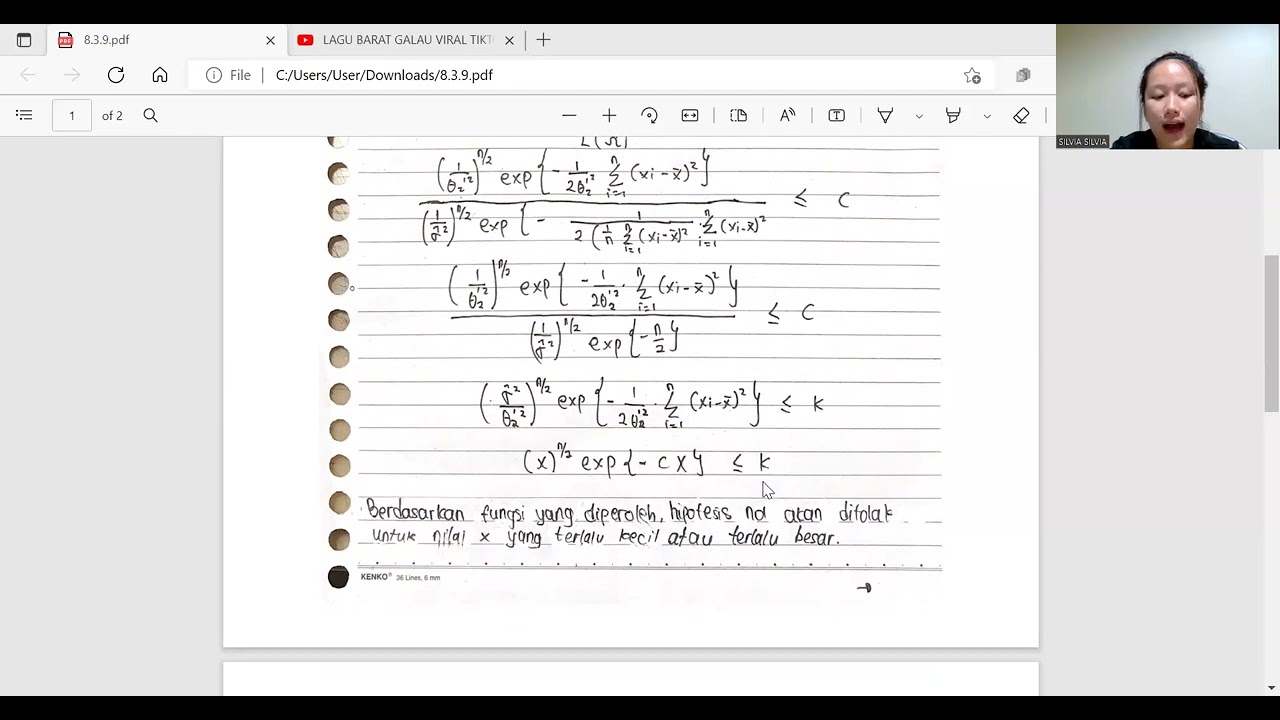 8.3.9.pdf
LAGU BARAT GALAU VIRAL TIKT
File | C:/Users/User/Downloads/8.3.9.pdf
1 of 2
SILVIA SILVIA
L(Ω)
(1/θ₂'²)^n/2 exp{-1/2θ₂'² Σ_{i=1}^n (xi-x̄)²}
≤ C
(1/σ̂²)^n/2 exp{- 1/2(1/n Σ_{i=1}^n (xi-x̄)² · Σ_{i=1}^n (xi-x̄)²
(1/θ₂'²)^n/2 exp{-1/2θ₂'² · Σ_{i=1}^n (xi-x̄)²}
≤ C
(1/σ̂²)^n/2 exp{-n/2}
(σ̂²/θ₂'²)^n/2 exp{-1/2θ₂'² · Σ_{i=1}^n (xi-x̄)²} ≤ k
(x)^n/2 exp{-cx} ≤ k
Berdasarkan fungsi yang diperoleh, hipotesis nol akan ditolak
untuk nilai x yang terlalu kecil atau terlalu besar.
KENKO® 36 Lines, 6 mm